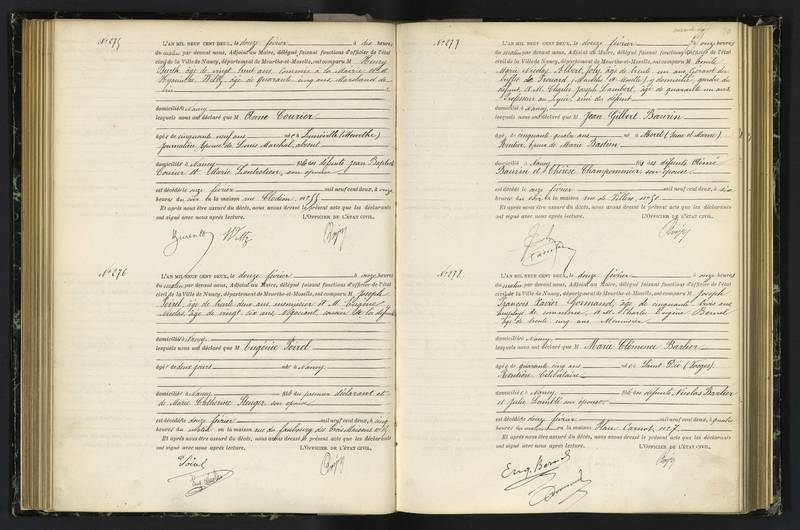 N° 275
L'AN MIL NEUF CENT DEUX, le douze février à dix heures
du matin par devant nous, Adjoint au Maire, délégué faisant fonctions d'officier de l'état
civil de la Ville de Nancy, département de Meurthe-et-Moselle, ont comparu M Henry
âgé de vingt huit ans, commis à la Mairie et M.
Hyacinthe Wiltz, âgé de quarante cinq ans, Marchand de
vin
domiciliés à Nancy
lesquels nous ont déclaré que M Anne Courier
âgée de cinquante neuf ans née à Lunéville (Meurthe)
Journalière, épouse de Louis Marchal, absent
domiciliée à Nancy fille en défunts Jean Baptiste
Courier et Marie, son épouse
est décédée le onze février mil neuf cent deux, à onze
heures du soir en la maison rue Clodion, n° 55
Et après nous être assuré du décès, nous avons dressé le présent acte que les déclarants
ont signé avec nous après lecture. L'OFFICIER DE L'ÉTAT CIVIL,
N° 276
L'AN MIL NEUF CENT DEUX, le douze février à onze heures
du matin par devant nous, Adjoint au Maire, délégué faisant fonctions d'officier de l'état
civil de la Ville de Nancy, département de Meurthe-et-Moselle, ont comparu M Joseph
Poirel, âgé de trente deux ans, menuisier et M. Eugène
Nicolas, âgé de vingt six ans, Négociant, cousin de la défunte
domiciliés à Nancy
lesquels nous ont déclaré que M Eugénie Poirel
âgée de deux jours née à Nancy
domiciliée à Nancy fille du premier déclarant et
de Marie Catherine, son épouse
est décédée douze février mil neuf cent deux, à cinq
heures du matin en la maison rue du faubourg des trois Maisons
Et après nous être assuré du décès, nous avons dressé le présent acte que les déclarants
ont signé avec nous après lecture. L'OFFICIER DE L'ÉTAT CIVIL,
N° 277
L'AN MIL NEUF CENT DEUX, le douze février à onze heures
du matin par devant nous, Adjoint au Maire, délégué faisant fonctions d'officier de l'état
civil de la Ville de Nancy, département de Meurthe-et-Moselle, ont comparu M Emile
Marie Nicolas Albert Joly, âgé de trente un ans, Gérant du
Frouard, (Meurthe et Moselle) y domicilié, gendre du
défunt, et M. Charles Joseph Lambert, âgé de quarante un ans,
Professeur au Lycée, ami du défunt
domicilié à Nancy
lesquels nous ont déclaré que M Jean Gilbert Baurin
âgé de cinquante quatre ans né à Moret (Seine et Marne)
Rentier, époux de Marie Bastien
domicilié à Nancy fils des défunts Aimé
Baurin et Thérèse Champonnier, son épouse
est décédé le onze février mil neuf cent deux, à dix
heures du soir en la maison rue de Villers, n° 50
Et après nous être assuré du décès, nous avons dressé le présent acte que les déclarants
ont signé avec nous après lecture. L'OFFICIER DE L'ÉTAT CIVIL,
N° 278
L'AN MIL NEUF CENT DEUX, le douze février à onze heures
du matin par devant nous, Adjoint au Maire, délégué faisant fonctions d'officier de l'état
civil de la Ville de Nancy, département de Meurthe-et-Moselle, ont comparu M Joseph
François Xavier Germand, âgé de cinquante trois ans
employé de commerce, et M. Charles Eugène Bernel
âgé de trente cinq ans, Menuisier
domiciliés à Nancy
lesquels nous ont déclaré que M Marie Clémence Barlier
âgée de quarante cinq ans née à Saint Dié (Vosges)
Rentière Célibataire
domiciliée à Nancy fille en défunts Nicolas Barlier
et Julie, son épouse
est décédée douze février mil neuf cent deux, à quatre
heures du matin en la maison Place Carnot, n° 7
Et après nous être assuré du décès, nous avons dressé le présent acte que les déclarants
ont signé avec nous après lecture. L'OFFICIER DE L'ÉTAT CIVIL,